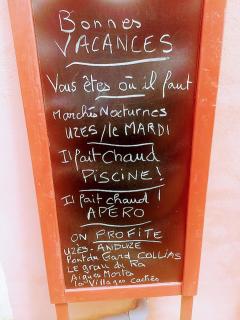 Bonnes
VACANCES
Vous êtes où il faut
Marchés Nocturnes
UZES/le MARDI
Il fait Chaud
PISCINE!
Il fait chaud!
APÉRO
ON PROFITE
UZÈS. ANDUZE
Pont du Gard COLLIAS
LE grau du Roi
Aigues Mortes
la Villages cachés